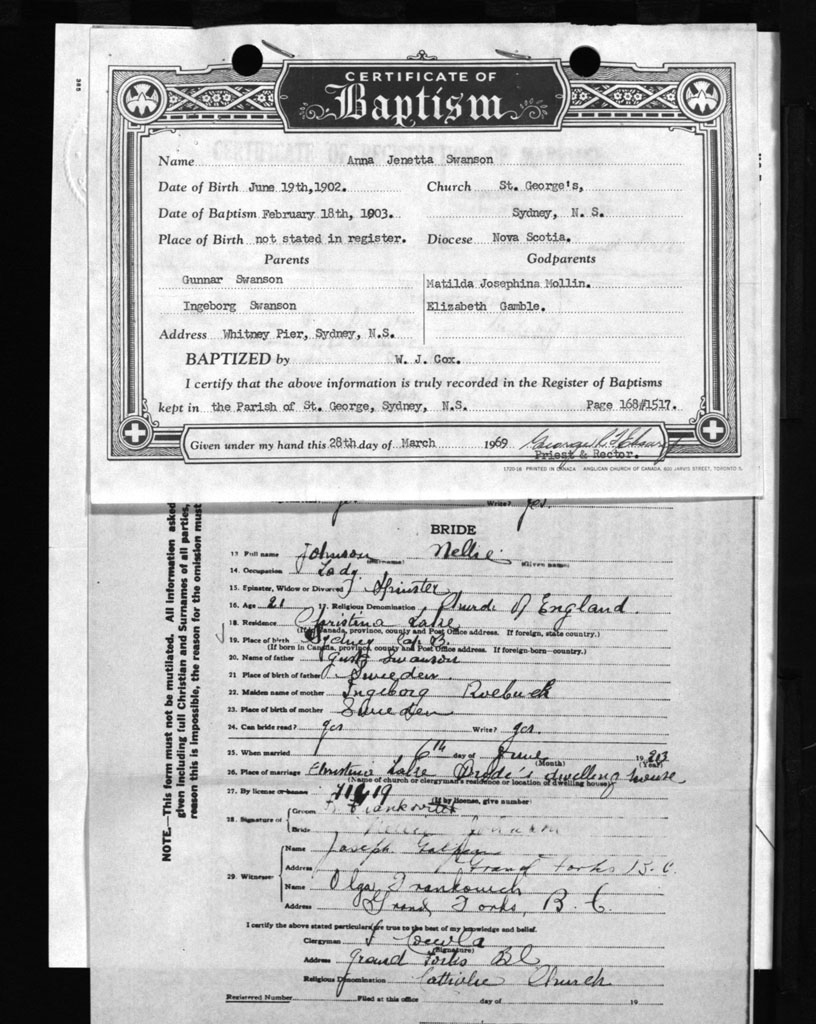 CERTIFICATE OF
Baptism
Name Anna Jenetta Swanson
Date of Birth June 19th, 1902. Church St. George's,
Date of Baptism February 18th, 1903. Sydney, N. S.
Place of Birth not stated in register. Diocese Nova Scotia.
Parents Godparents
Gunnar Swanson Matilda Josephina Mollin.
Ingeborg Swanson Elizabeth Gamble.
Address Whitney Pier, Sydney, N.S.
BAPTIZED by W. J. Cox.
I certify that the above information is truly recorded in the Register of Baptisms
kept in the Parish of St. George, Sydney, N.S. Page 168#1517.
Given under my hand this 28th day of March 1969 George
Priest & Rector.
1720-16 PRINTED IN CANADA ANGLICAN CHURCH OF CANADA, 600 JARVIS STREET, TORONTO 5,
NOTE.—This form must not be mutilated. All information asked
given including full Christian and Surnames of all parties,
reason this is impossible, the reason for the omission must
yes Write? yes.
BRIDE
13. Full name Johnson (Surname) Nellie (Given name)
14. Occupation Lady
15. Spinster, Widow or Divorced Spinster
16. Age 21 17. Religious Denomination Church of England.
18. Residence Christina Lake
(If in Canada, province, county and Post Office address. If foreign, state country.)
19. Place of birth Sydney Cap B.
(If born in Canada, province, county and Post Office address. If foreign-born—country.)
20. Name of father Swanson
21. Place of birth of father Sweden
22. Maiden name of mother Ingeborg Roebuck
23. Place of birth of mother Sweden
24. Can bride read? yes Write? yes.
25. When married 6th day of June (Month) 1923 (Year)
26. Place of marriage Christina Lake Bride's dwelling house
(Name of church or clergyman's residence or location of dwelling house)
27. By license or banns (If by license, give number)
28. Signature of Groom
Bride
29. Witnesses Name Joseph
Address Grand Forks B.C.
Name Olga Frankovich
Address Grand Forks, B.C.
I certify the above stated particulars are true to the best of my knowledge and belief.
Clergyman (Signature)
Address Grand Forks BC
Religious Denomination Catholic Church
Registered Number Filed at this office day of 19